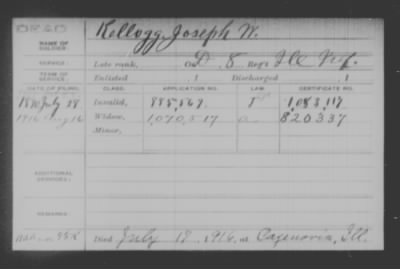 DEAD
NAME OF SOLDIER: Kellogg, Joseph W.
SERVICE: Late rank, Co. D, 8 Reg't Ill. Inf.
TERM OF SERVICE: Enlisted , 1 Discharged , 1
DATE OF FILING. CLASS. APPLICATION NO. LAW. CERTIFICATE NO.
July 28 Invalid, 885,567 1,083,117
1916 Aug 16 Widow, 1,070,517 820337
Minor,
ADDITIONAL SERVICES:
REMARKS:
Died July 19, 1916, at Cazenovia, Ill.